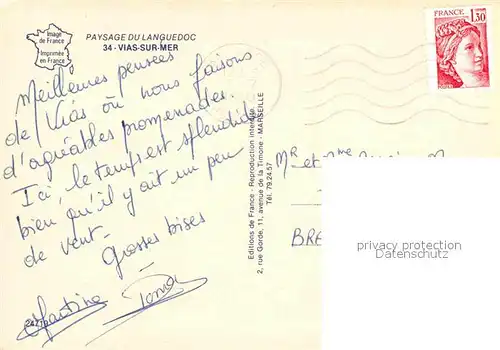 Image
de France
Imprimée
en France
PAYSAGE DU LANGUEDOC
34 - VIAS-SUR-MER
FRANCE
1,30
Meilleures pensées
de Vias où nous faisons
d'agréables promenades.
Ici, le temps est splendide
bien qu'il y ait un peu
de vent -
Grosses bises
Martine
Editions de France - Reproduction interdite
2, rue Gorde, 11, avenue de la Timone - MARSEILLE
Tél. 79.24.57
Mr et Mme
BRE
privacy protection
DARABANTH